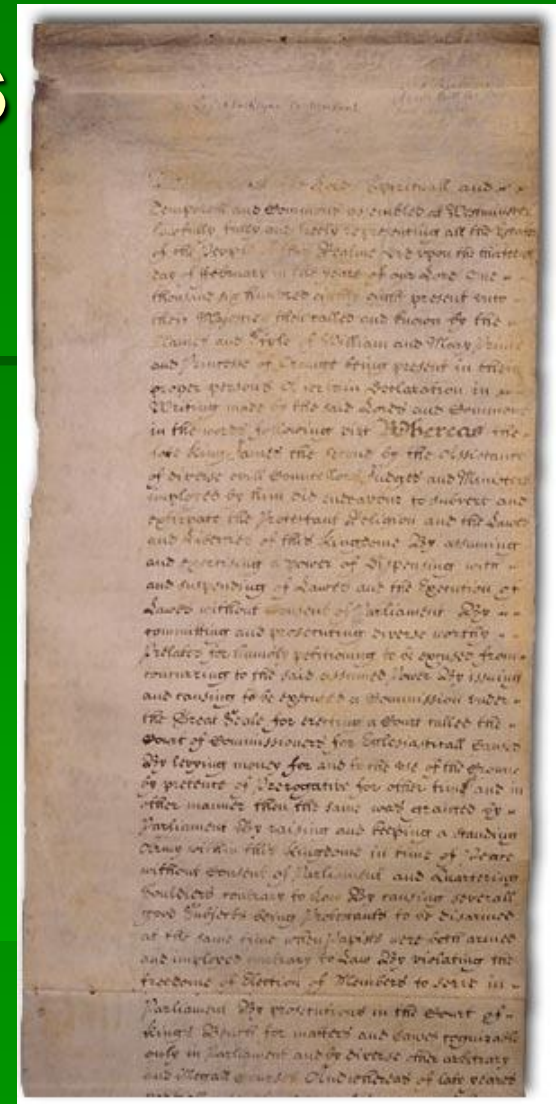 s
Spirituall and
Temporall and Commons assembled at Westminster
lawfully fully and freely representing all the Estates
of the People of this Realme did upon the thirteenth
day of February in the yeare of our Lord One
thousand six hundred eighty eight present unto
their Majesties then called and known by the
Names and Stile of William and Mary Prince
and Princesse of Orange being present in their
proper persons A certain Declaration in
Writing made by the said Lords and Commons
in the words following vizt Whereas the
late King James the Second by the Assistance
of diverse evill Councellors Judges and Ministers
imployed by him did endeavour to subvert and
extirpate the Protestant Religion and the Lawes
and Liberties of this Kingdome By assuming
and exercising a power of Dispensing with
and suspending of Lawes and the Execution of
Lawes without Consent of Parliament By
committing and prosecuting diverse worthy
Prelates for humbly petitioning to be excused from
concurring to the said assumed Power By issuing
and causing to be executed a Commission under
the Great Seale for erecting a Court called the
Court of Commissioners for Ecclesiasticall Causes
By levying money for and to the use of the Crowne
by pretence of Prerogative for other time and in
other manner then the same was granted by
Parliament By raising and keeping a standing
Army within this Kingdome in time of Peace
without Consent of Parliament and Quartering
Souldiers contrary to Law By causing severall
good Subjects being Protestants to be disarmed
at the same time when Papists were both armed
and imployed contrary to Law By violating the
freedome of Election of Members to serve in
Parliament By prosecutions in the Court of
Kings Bench for matters and Causes cognizable
only in Parliament and by diverse other arbitrary
and illegall Courses And whereas of late yeares